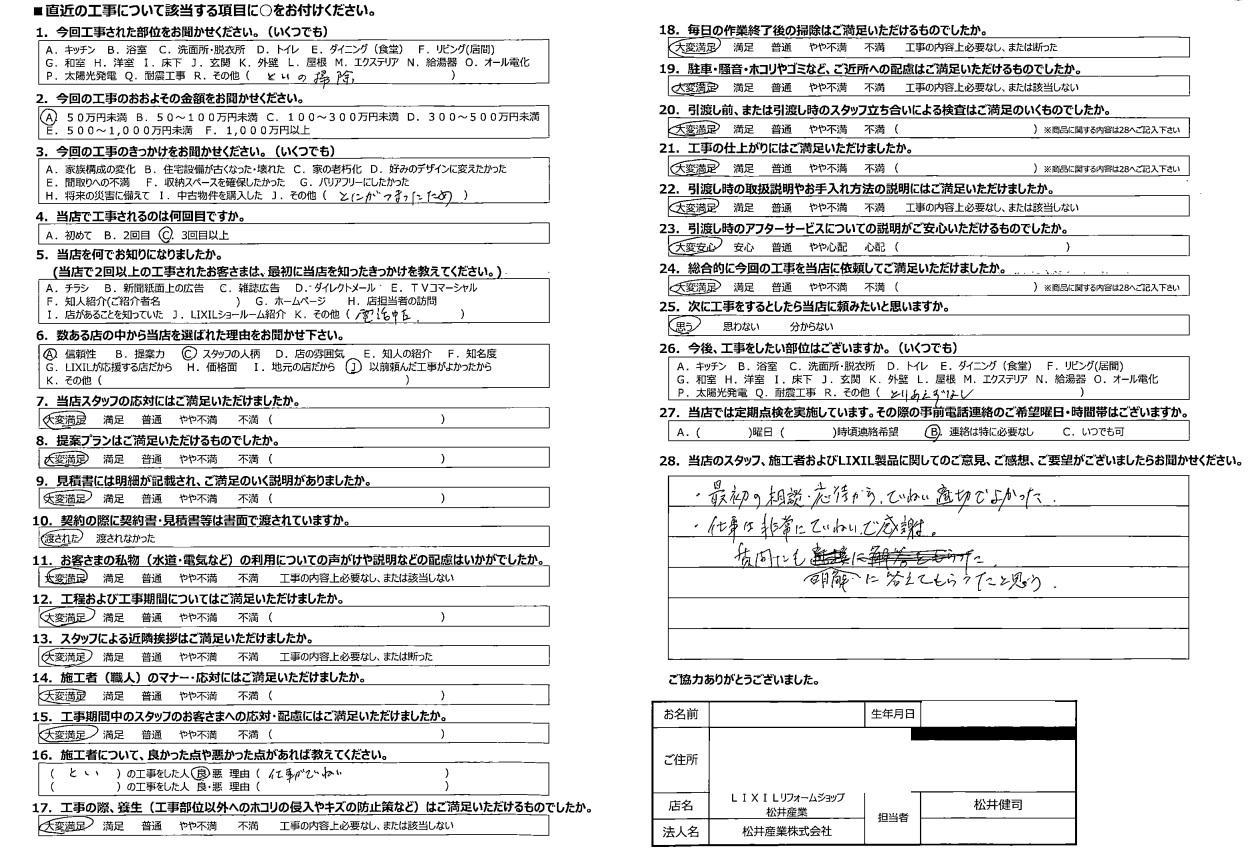 ■直近の工事について該当する項目に○をお付けください。
1．今回工事された部位をお聞かせください。（いくつでも）
A．キッチン B．浴室 C．洗面所・脱衣所 D．トイレ E．ダイニング（食堂） F．リビング(居間)
G．和室 H．洋室 I．床下 J．玄関 K．外壁 L．屋根 M．エクステリア N．給湯器 O．オール電化
P．太陽光発電 Q．耐震工事 R．その他（ といの掃除 ）
2．今回の工事のおおよその金額をお聞かせください。
A 50万円未満 B．50～100万円未満 C．100～300万円未満 D．300～500万円未満
E．500～1,000万円未満 F．1,000万円以上
3．今回の工事のきっかけをお聞かせください。（いくつでも）
A．家族構成の変化 B．住宅設備が古くなった・壊れた C．家の老朽化 D．好みのデザインに変えたかった
E．間取りへの不満 F．収納スペースを確保したかった G．バリアフリーにしたかった
H．将来の災害に備えて I．中古物件を購入した J．その他（ といがつまったため ）
4．当店で工事されるのは何回目ですか。
A．初めて B．2回目 C．3回目以上
5．当店を何でお知りになりましたか。
(当店で2回以上の工事されたお客さまは、最初に当店を知ったきっかけを教えてください。)
A．チラシ B．新聞紙面上の広告 C．雑誌広告 D．ダイレクトメール E．TVコマーシャル
F．知人紹介(ご紹介者名 ) G．ホームページ H．店担当者の訪問
I．店があることを知っていた J．LIXILショールーム紹介 K．その他（ ）
6．数ある店の中から当店を選ばれた理由をお聞かせ下さい。
A 信頼性 B．提案力 C スタッフの人柄 D．店の雰囲気 E．知人の紹介 F．知名度
G．LIXILが応援する店だから H．価格面 I．地元の店だから J 以前頼んだ工事がよかったから
K．その他（ ）
7．当店スタッフの応対にはご満足いただけましたか。
大変満足 満足 普通 やや不満 不満（ ）
8．提案プランはご満足いただけるものでしたか。
大変満足 満足 普通 やや不満 不満（ ）
9．見積書には明細が記載され、ご満足のいく説明がありましたか。
大変満足 満足 普通 やや不満 不満（ ）
10．契約の際に契約書・見積書等は書面で渡されていますか。
渡された 渡されなかった
11．お客さまの私物（水道・電気など）の利用についての声がけや説明などの配慮はいかがでしたか。
大変満足 満足 普通 やや不満 不満 工事の内容上必要なし、または該当しない
12．工程および工事期間についてはご満足いただけましたか。
大変満足 満足 普通 やや不満 不満（ ）
13．スタッフによる近隣挨拶はご満足いただけましたか。
大変満足 満足 普通 やや不満 不満 工事の内容上必要なし、または断った
14．施工者（職人）のマナー・応対にはご満足いただけましたか。
大変満足 満足 普通 やや不満 不満（ ）
15．工事期間中のスタッフのお客さまへの応対・配慮にはご満足いただけましたか。
大変満足 満足 普通 やや不満 不満（ ）
16．施工者について、良かった点や悪かった点があれば教えてください。
（ とい ）の工事をした人 良 悪 理由（ 仕事がていねい ）
（ ）の工事をした人 良・悪 理由（ ）
17．工事の際、養生（工事部位以外へのホコリの侵入やキズの防止策など）はご満足いただけるものでしたか。
大変満足 満足 普通 やや不満 不満 工事の内容上必要なし、または該当しない
18．毎日の作業終了後の掃除はご満足いただけるものでしたか。
大変満足 満足 普通 やや不満 不満 工事の内容上必要なし、または断った
19．駐車・騒音・ホコリやゴミなど、ご近所への配慮はご満足いただけるものでしたか。
大変満足 満足 普通 やや不満 不満 工事の内容上必要なし、または該当しない
20．引渡し前、または引渡し時のスタッフ立ち合いによる検査はご満足のいくものでしたか。
大変満足 満足 普通 やや不満 不満（ ）※商品に関する内容は28へご記入下さい
21．工事の仕上がりにはご満足いただけましたか。
大変満足 満足 普通 やや不満 不満（ ）※商品に関する内容は28へご記入下さい
22．引渡し時の取扱説明やお手入れ方法の説明にはご満足いただけましたか。
大変満足 満足 普通 やや不満 不満 工事の内容上必要なし、または該当しない
23．引渡し時のアフターサービスについての説明がご安心いただけるものでしたか。
大変安心 安心 普通 やや心配 心配（ ）
24．総合的に今回の工事を当店に依頼してご満足いただけましたか。
大変満足 満足 普通 やや不満 不満（ ）※商品に関する内容は28へご記入下さい
25．次に工事をするとしたら当店に頼みたいと思いますか。
思う 思わない 分からない
26．今後、工事をしたい部位はございますか。（いくつでも）
A．キッチン B．浴室 C．洗面所・脱衣所 D．トイレ E．ダイニング（食堂） F．リビング(居間)
G．和室 H．洋室 I．床下 J．玄関 K．外壁 L．屋根 M．エクステリア N．給湯器 O．オール電化
P．太陽光発電 Q．耐震工事 R．その他（ とりあえずなし ）
27．当店では定期点検を実施しています。その際の事前電話連絡のご希望曜日・時間帯はございますか。
A．（ ）曜日（ ）時頃連絡希望 B．連絡は特に必要なし C．いつでも可
28．当店のスタッフ、施工者およびLIXIL製品に関してのご意見、ご感想、ご要望がございましたらお聞かせください。
・最初の相談・応待から、ていねい適切でよかった．
・仕事は非常にていねいで感謝。
質問にも
明解に答えてもらうたと思う．
ご協力ありがとうございました。
お名前 生年月日
ご住所
店名 LIXILリフォームショップ 松井産業 担当者 松井健司
法人名 松井産業株式会社